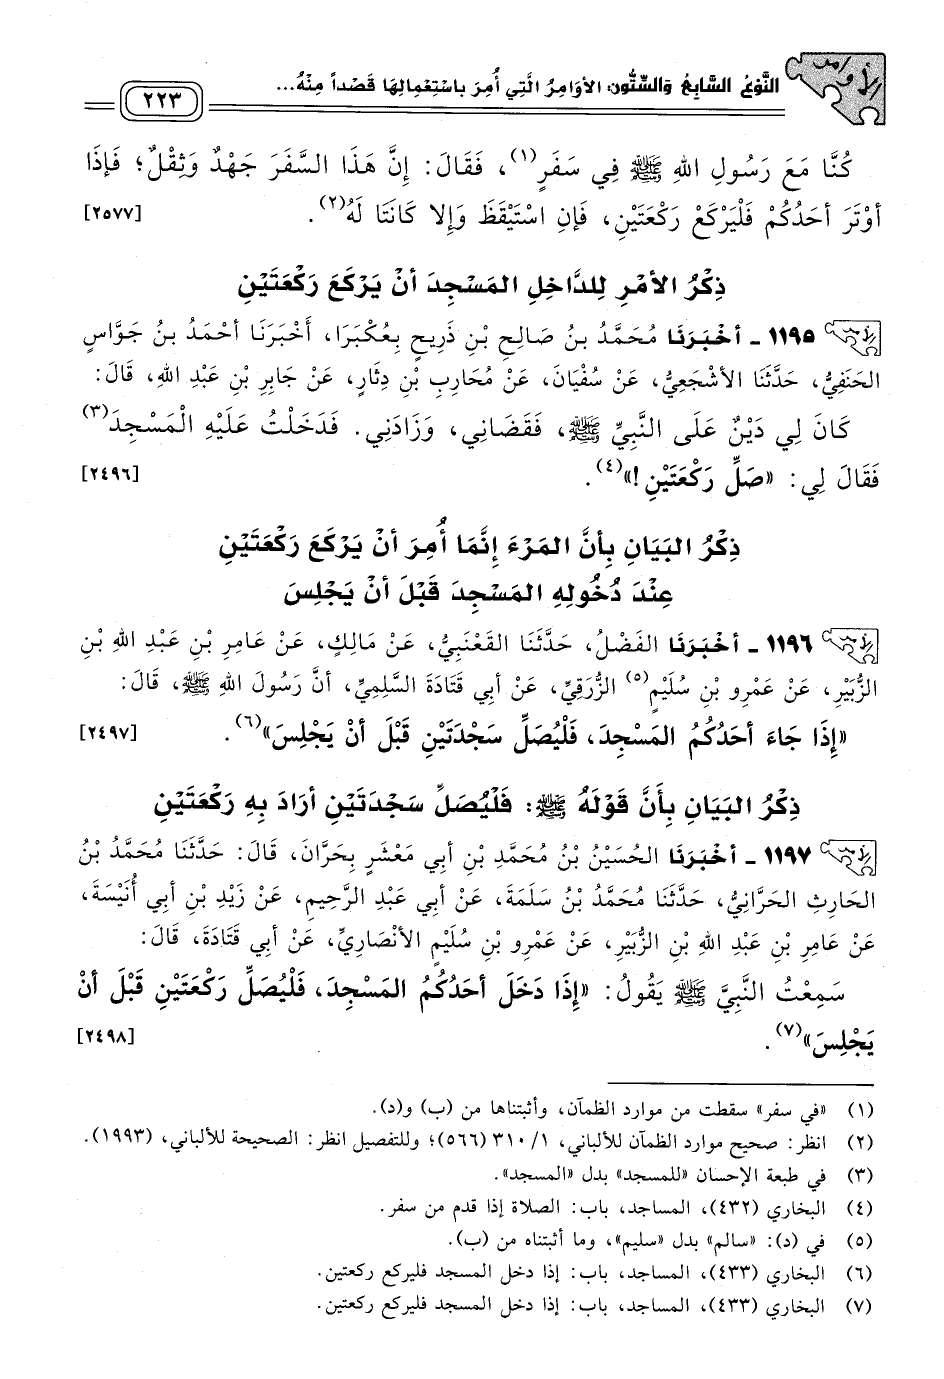 الأوامر
النَّوْعُ السَّابِعُ وَالسِّتُّون: الأَوَامِرُ الَّتِي أُمِرَ بِاسْتِعْمَالِهَا قَصْداً مِنْهُ...
٢٢٣
كُنَّا مَعَ رَسُولِ اللهِ ﷺ فِي سَفَرٍ(١)، فَقَالَ: إِنَّ هَذَا السَّفَرَ جَهْدٌ وَثِقْلٌ؛ فَإِذَا
أَوْتَرَ أَحَدُكُمْ فَلْيَرْكَعْ رَكْعَتَيْنِ، فَإِنِ اسْتَيْقَظَ وَإِلا كَانَتَا لَهُ(٢). [٢٥٧٧]
ذِكْرُ الأَمْرِ لِلدَّاخِلِ المَسْجِدَ أَنْ يَرْكَعَ رَكْعَتَيْنِ
١١٩٥ - أَخْبَرَنَا مُحَمَّدُ بنُ صَالِحِ بْنِ ذَرِيحٍ بِعُكْبَرَا، أَخْبَرَنَا أَحْمَدُ بنُ جَوَّاسٍ
الحَنَفِيُّ، حَدَّثَنَا الأَشْجَعِيُّ، عَنْ سُفْيَانَ، عَنْ مُحَارِبِ بْنِ دِثَارٍ، عَنْ جَابِرِ بْنِ عَبْدِ اللهِ، قَالَ:
كَانَ لِي دَيْنٌ عَلَى النَّبِيِّ ﷺ، فَقَضَانِي، وَزَادَنِي. فَدَخَلْتُ عَلَيْهِ الْمَسْجِدَ(٣)
فَقَالَ لِي: «صَلِّ رَكْعَتَيْنِ!»(٤). [٢٤٩٦]
ذِكْرُ البَيَانِ بِأَنَّ المَرْءَ إِنَّمَا أُمِرَ أَنْ يَرْكَعَ رَكْعَتَيْنِ
عِنْدَ دُخُولِهِ المَسْجِدَ قَبْلَ أَنْ يَجْلِسَ
١١٩٦ - أَخْبَرَنَا الفَضْلُ، حَدَّثَنَا القَعْنَبِيُّ، عَنْ مَالِكٍ، عَنْ عَامِرِ بْنِ عَبْدِ اللهِ بْنِ
الزُّبَيْرِ، عَنْ عَمْرِو بْنِ سُلَيْمٍ(٥) الزُّرَقِيِّ، عَنْ أَبِي قَتَادَةَ السَّلِمِيِّ، أَنَّ رَسُولَ اللهِ ﷺ، قَالَ:
«إِذَا جَاءَ أَحَدُكُمُ المَسْجِدَ، فَلْيُصَلِّ سَجْدَتَيْنِ قَبْلَ أَنْ يَجْلِسَ»(٦). [٢٤٩٧]
ذِكْرُ البَيَانِ بِأَنَّ قَوْلَهُ ﷺ: فَلْيُصَلِّ سَجْدَتَيْنِ أَرَادَ بِهِ رَكْعَتَيْنِ
١١٩٧ - أَخْبَرَنَا الحُسَيْنُ بْنُ مُحَمَّدِ بْنِ أَبِي مَعْشَرٍ بِحَرَّانَ، قَالَ: حَدَّثَنَا مُحَمَّدُ بْنُ
الحَارِثِ الحَرَّانِيُّ، حَدَّثَنَا مُحَمَّدُ بْنُ سَلَمَةَ، عَنْ أَبِي عَبْدِ الرَّحِيمِ، عَنْ زَيْدِ بْنِ أَبِي أُنَيْسَةَ،
عَنْ عَامِرِ بْنِ عَبْدِ اللهِ بْنِ الزُّبَيْرِ، عَنْ عَمْرِو بْنِ سُلَيْمٍ الأَنْصَارِيِّ، عَنْ أَبِي قَتَادَةَ، قَالَ:
سَمِعْتُ النَّبِيَّ ﷺ يَقُولُ: «إِذَا دَخَلَ أَحَدُكُمُ المَسْجِدَ، فَلْيُصَلِّ رَكْعَتَيْنِ قَبْلَ أَنْ
يَجْلِسَ»(٧). [٢٤٩٨]
(١) «في سفر» سقطت من موارد الظمآن، وأثبتناها من (ب) و(د).
(٢) انظر: صحيح موارد الظمآن للألباني، ٣١٠/١ (٥٦٦)؛ وللتفصيل انظر: الصحيحة للألباني، (١٩٩٣).
(٣) في طبعة الإحسان «للمسجد» بدل «المسجد».
(٤) البخاري (٤٣٢)، المساجد، باب: الصلاة إذا قدم من سفر.
(٥) في (د): «سالم» بدل «سليم»، وما أثبتناه من (ب).
(٦) البخاري (٤٣٣)، المساجد، باب: إذا دخل المسجد فليركع ركعتين.
(٧) البخاري (٤٣٣)، المساجد، باب: إذا دخل المسجد فليركع ركعتين.